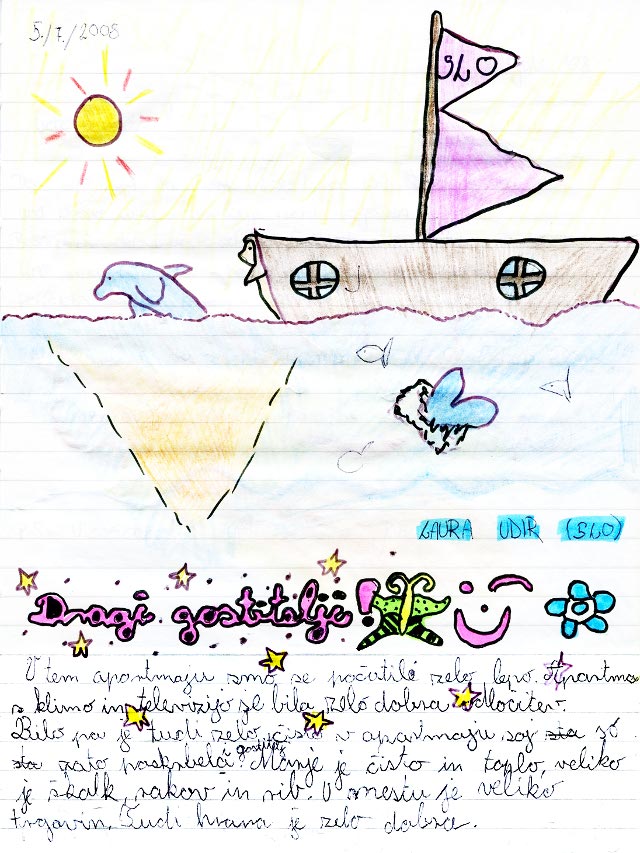 5./7./2008
SLO
LAURA UDIR (SLO)
Dragi gostitelji!
V tem apartmaju smo se počutili zelo lepo. Apartma
s klimo in televizijo je bila zelo dobra odločitev.
Bilo pa je tudi zelo čisto v apartmaju, saj sta zó
sta zato poskrbela gostitelja. Morje je čisto in toplo, veliko
je školk, rakov in rib. V mestu je veliko
trgovin. Tudi hrana je zelo dobra.